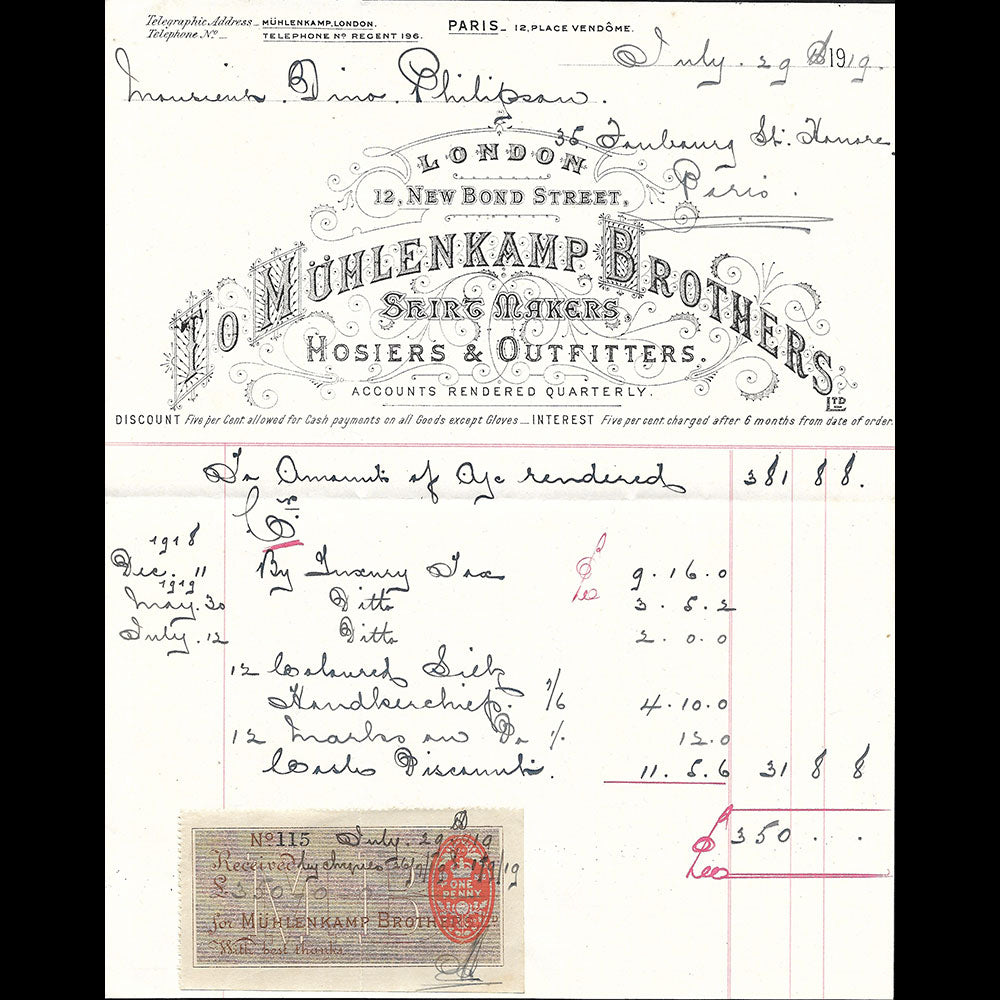 Telegraphic Address_ MÜHLENKAMP, LONDON.
Telephone No_ TELEPHONE No REGENT 196.
PARIS_ 12, PLACE VENDÔME.
July. 29 1919.
Monsieur. Dino. Philipson.
36. Faubourg St. Honore
Paris.
LONDON
12, NEW BOND STREET,
TO MÜHLENKAMP BROTHERS LTD
SHIRT MAKERS,
HOSIERS & OUTFITTERS.
ACCOUNTS RENDERED QUARTERLY.
DISCOUNT Five per Cent allowed for Cash payments on all Goods except Gloves_INTEREST Five per cent. charged after 6 months from date of order.
To Amount of A/c rendered 381 8 8.
Cr
1918
Dec. 11 By Luxury Tax £ 9.16.0
1919
May. 30 Ditto 3.5.2
July. 12 Ditto 2.0.0
12 Coloured Silk
Handkerchief. 7/6 4.10.0
12 Marks on Do 1/. 12.0
Cash Discount. 11.5.6 31 8 8
£ 350 . . .
No 115 July. 29 1919
Received by cheques
£350
for MÜHLENKAMP BROTHERS LTD
With best thanks
ONE PENNY